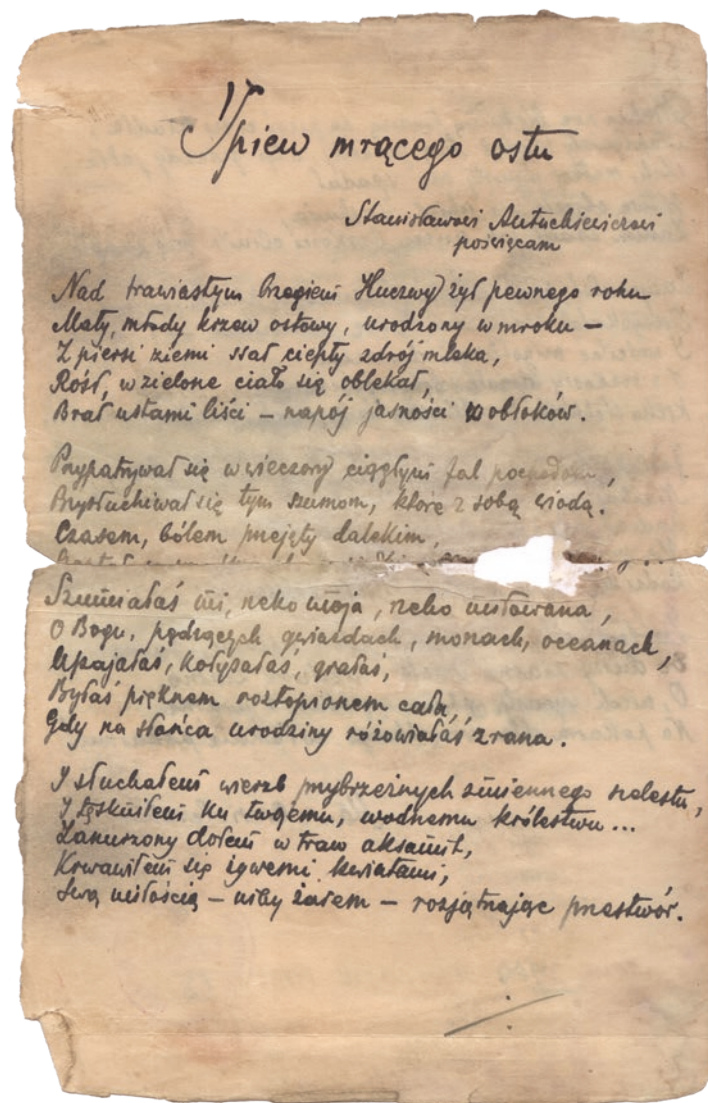 Śpiew mrącego ostu
Stanisławowi Antuchiewiczowi
poświęcam
Nad trawiastym brzegiem Huczwy żył pewnego roku
Mały, młody krzew ostowy, urodzony w mroku –
Z piersi ziemi ssał ciepły zdrój mleka,
Rósł, w zielone ciało się oblekał,
Brał ustami liści – napój jasności z obłoków.
Przypatrywał się w wieczory ciągłym fal pochodom,
Przysłuchiwał się tym szumom, które z sobą wiodą.
Czasem, bólem przejęty dalekim,
Szumiałaś mi, rzeko moja, rzeko miłowana,
O Bogu, pędzących gwiazdach, morzach, oceanach,
Upajałaś, kołysałaś, grałaś,
Byłaś pięknem roztopionem cała
Gdy na słońca urodziny różowiałaś zrana.
I słuchałem wierzb przybrzeżnych zmiennego szelestu,
I tęskniłem ku twojemu, wodnemu królestwu...
Zanurzony dołem w traw aksamit,
Krwawiłem się żywemi kwiatami,
Swą miłością – niby żalem – rozjątrzając przestwór.